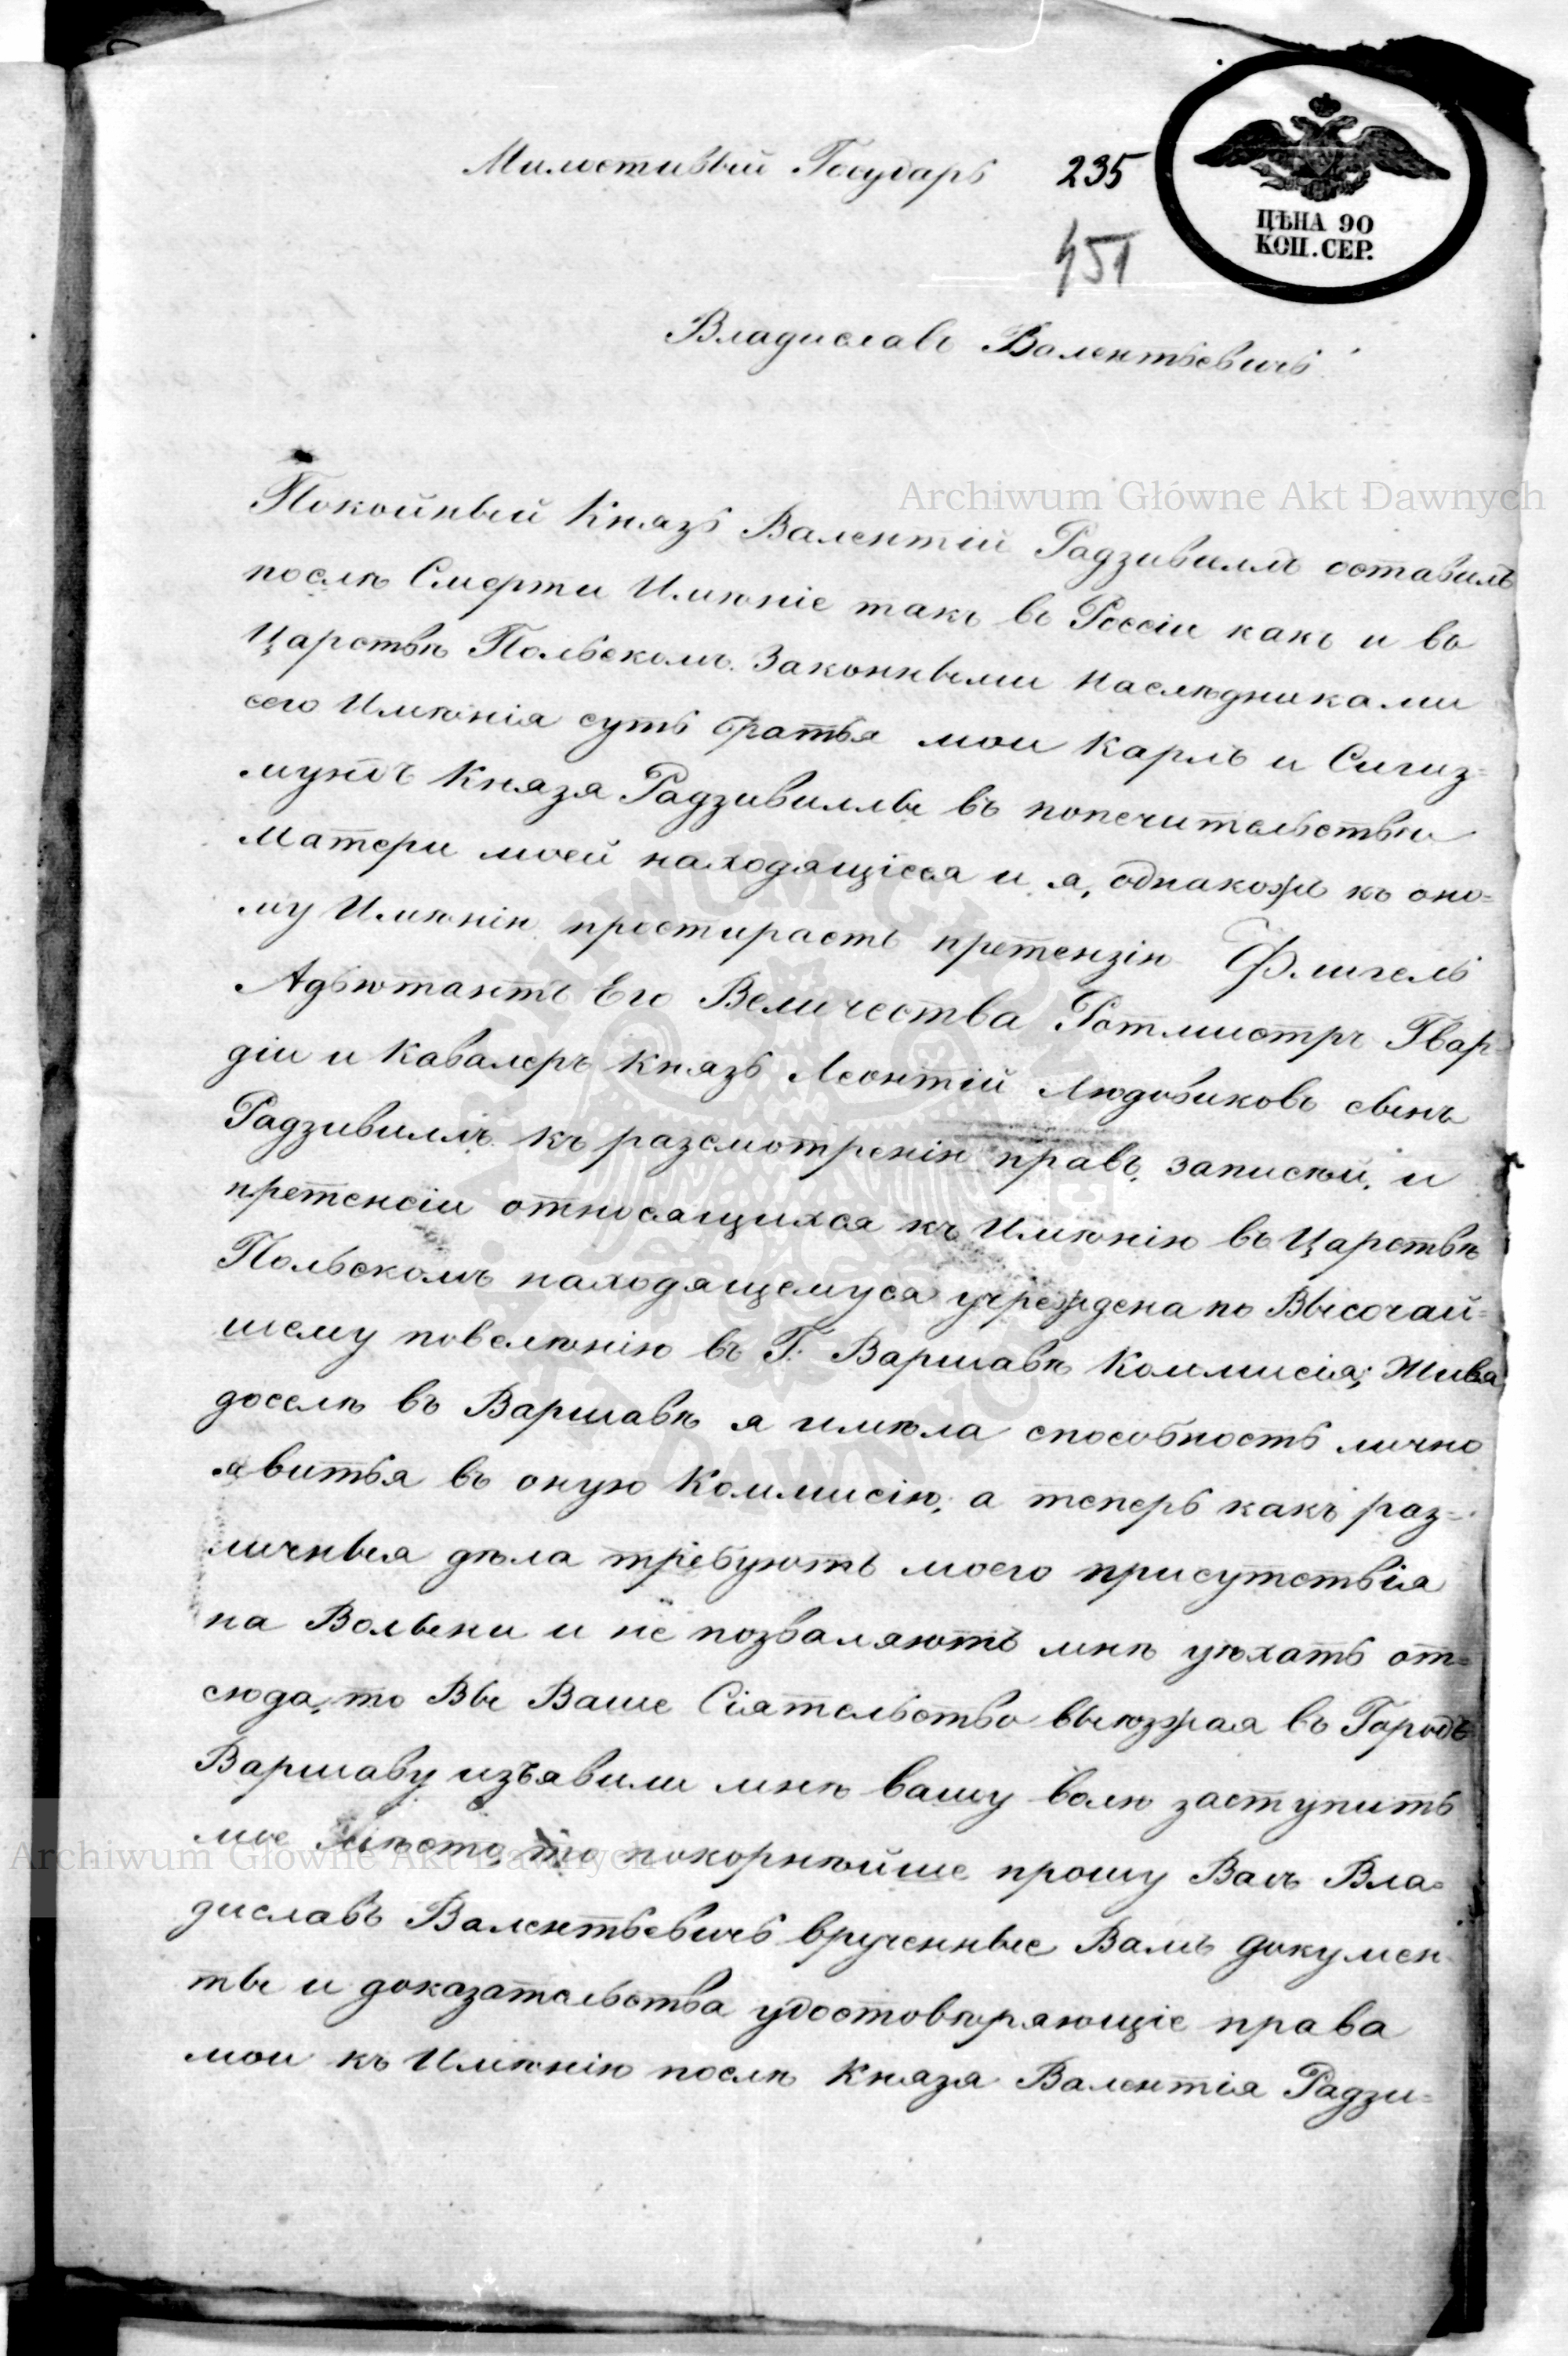 Милостивый Государь 235
ЦѢНА 90
КОП. СЕР.
451
Владиславъ Валентьевичь
Archiwum Główne Akt Dawnych
Покойный Князь Валентій Радзивиллъ оставилъ
послѣ Смерти Имѣніе такъ въ Россіи какъ и въ
Царствѣ Польскомъ. Законными Наслѣдниками
сего Имѣнія суть братья мои Карлъ и Сигиз=
мундъ Князя Радзивиллы въ попечительствѣ
Матери моей находящіеся и я, однакожъ къ оно=
му Имѣнію простираетъ претензію Флигель
Адъютантъ Его Величества Ротмистръ Гвар=
діи и Кавалеръ Князь Леонтій Людовиковъ сынъ
Радзивиллъ. Къ разсмотренію правъ, записей, и
претенсіи относящихся къ Имѣнію въ Царствѣ
Польскомъ находящемуся учреждена по Высочай=
шему повелѣнію въ Г: Варшавѣ Коммисія; Живя
доселѣ въ Варшавѣ я имѣла способность лично
явиться въ оную Коммисію; а теперь какъ раз=
личныя дѣла требуютъ моего присутствія
на Волыни и не позваляютъ мнѣ уѣхать от=
сюда, то Вы Ваше Сіятельство выѣзжая въ Городъ
Варшаву изъявили мнѣ вашу волю заступить
мое мѣсто, то покорнѣйше прошу Васъ Вла=
Archiwum Główne Akt Dawnych
диславъ Валентьевичь врученные Вамъ докумен=
ты и доказательства удостовѣряющіе права
мои къ Имѣнію послѣ Князя Валентія Радзи=